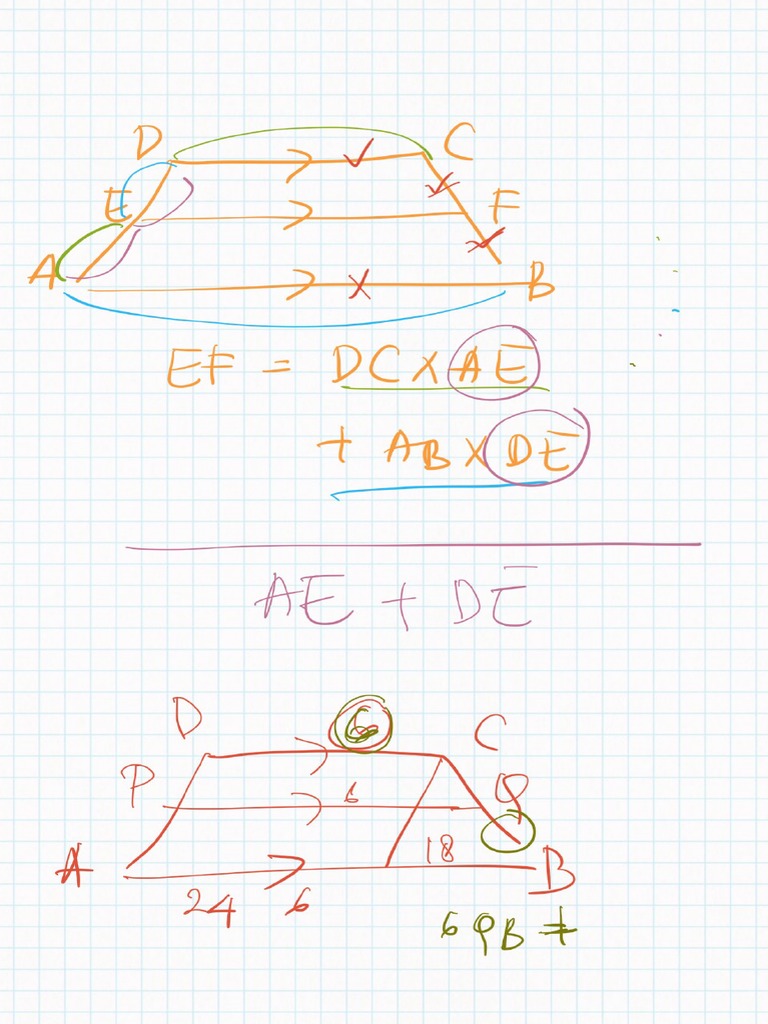 D C
E F
A B
EF = DC X AE
+ AB X DE
AE + DE
D 6 C
P 6 Q
A 18 B
24 6
6 QB +